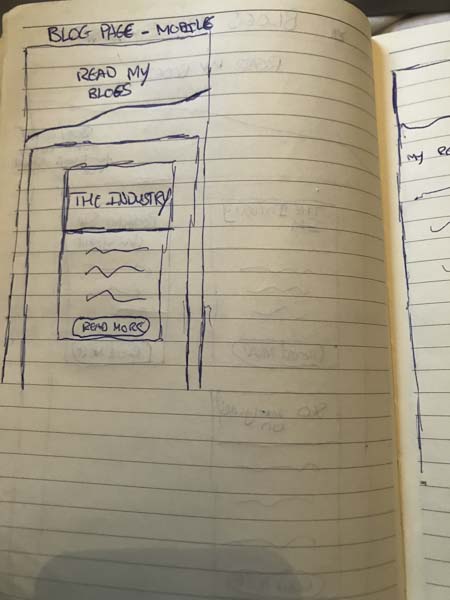 BLOG PAGE - MOBILE
READ MY
BLOGS
THE INDUSTRY
READ MORE
MY